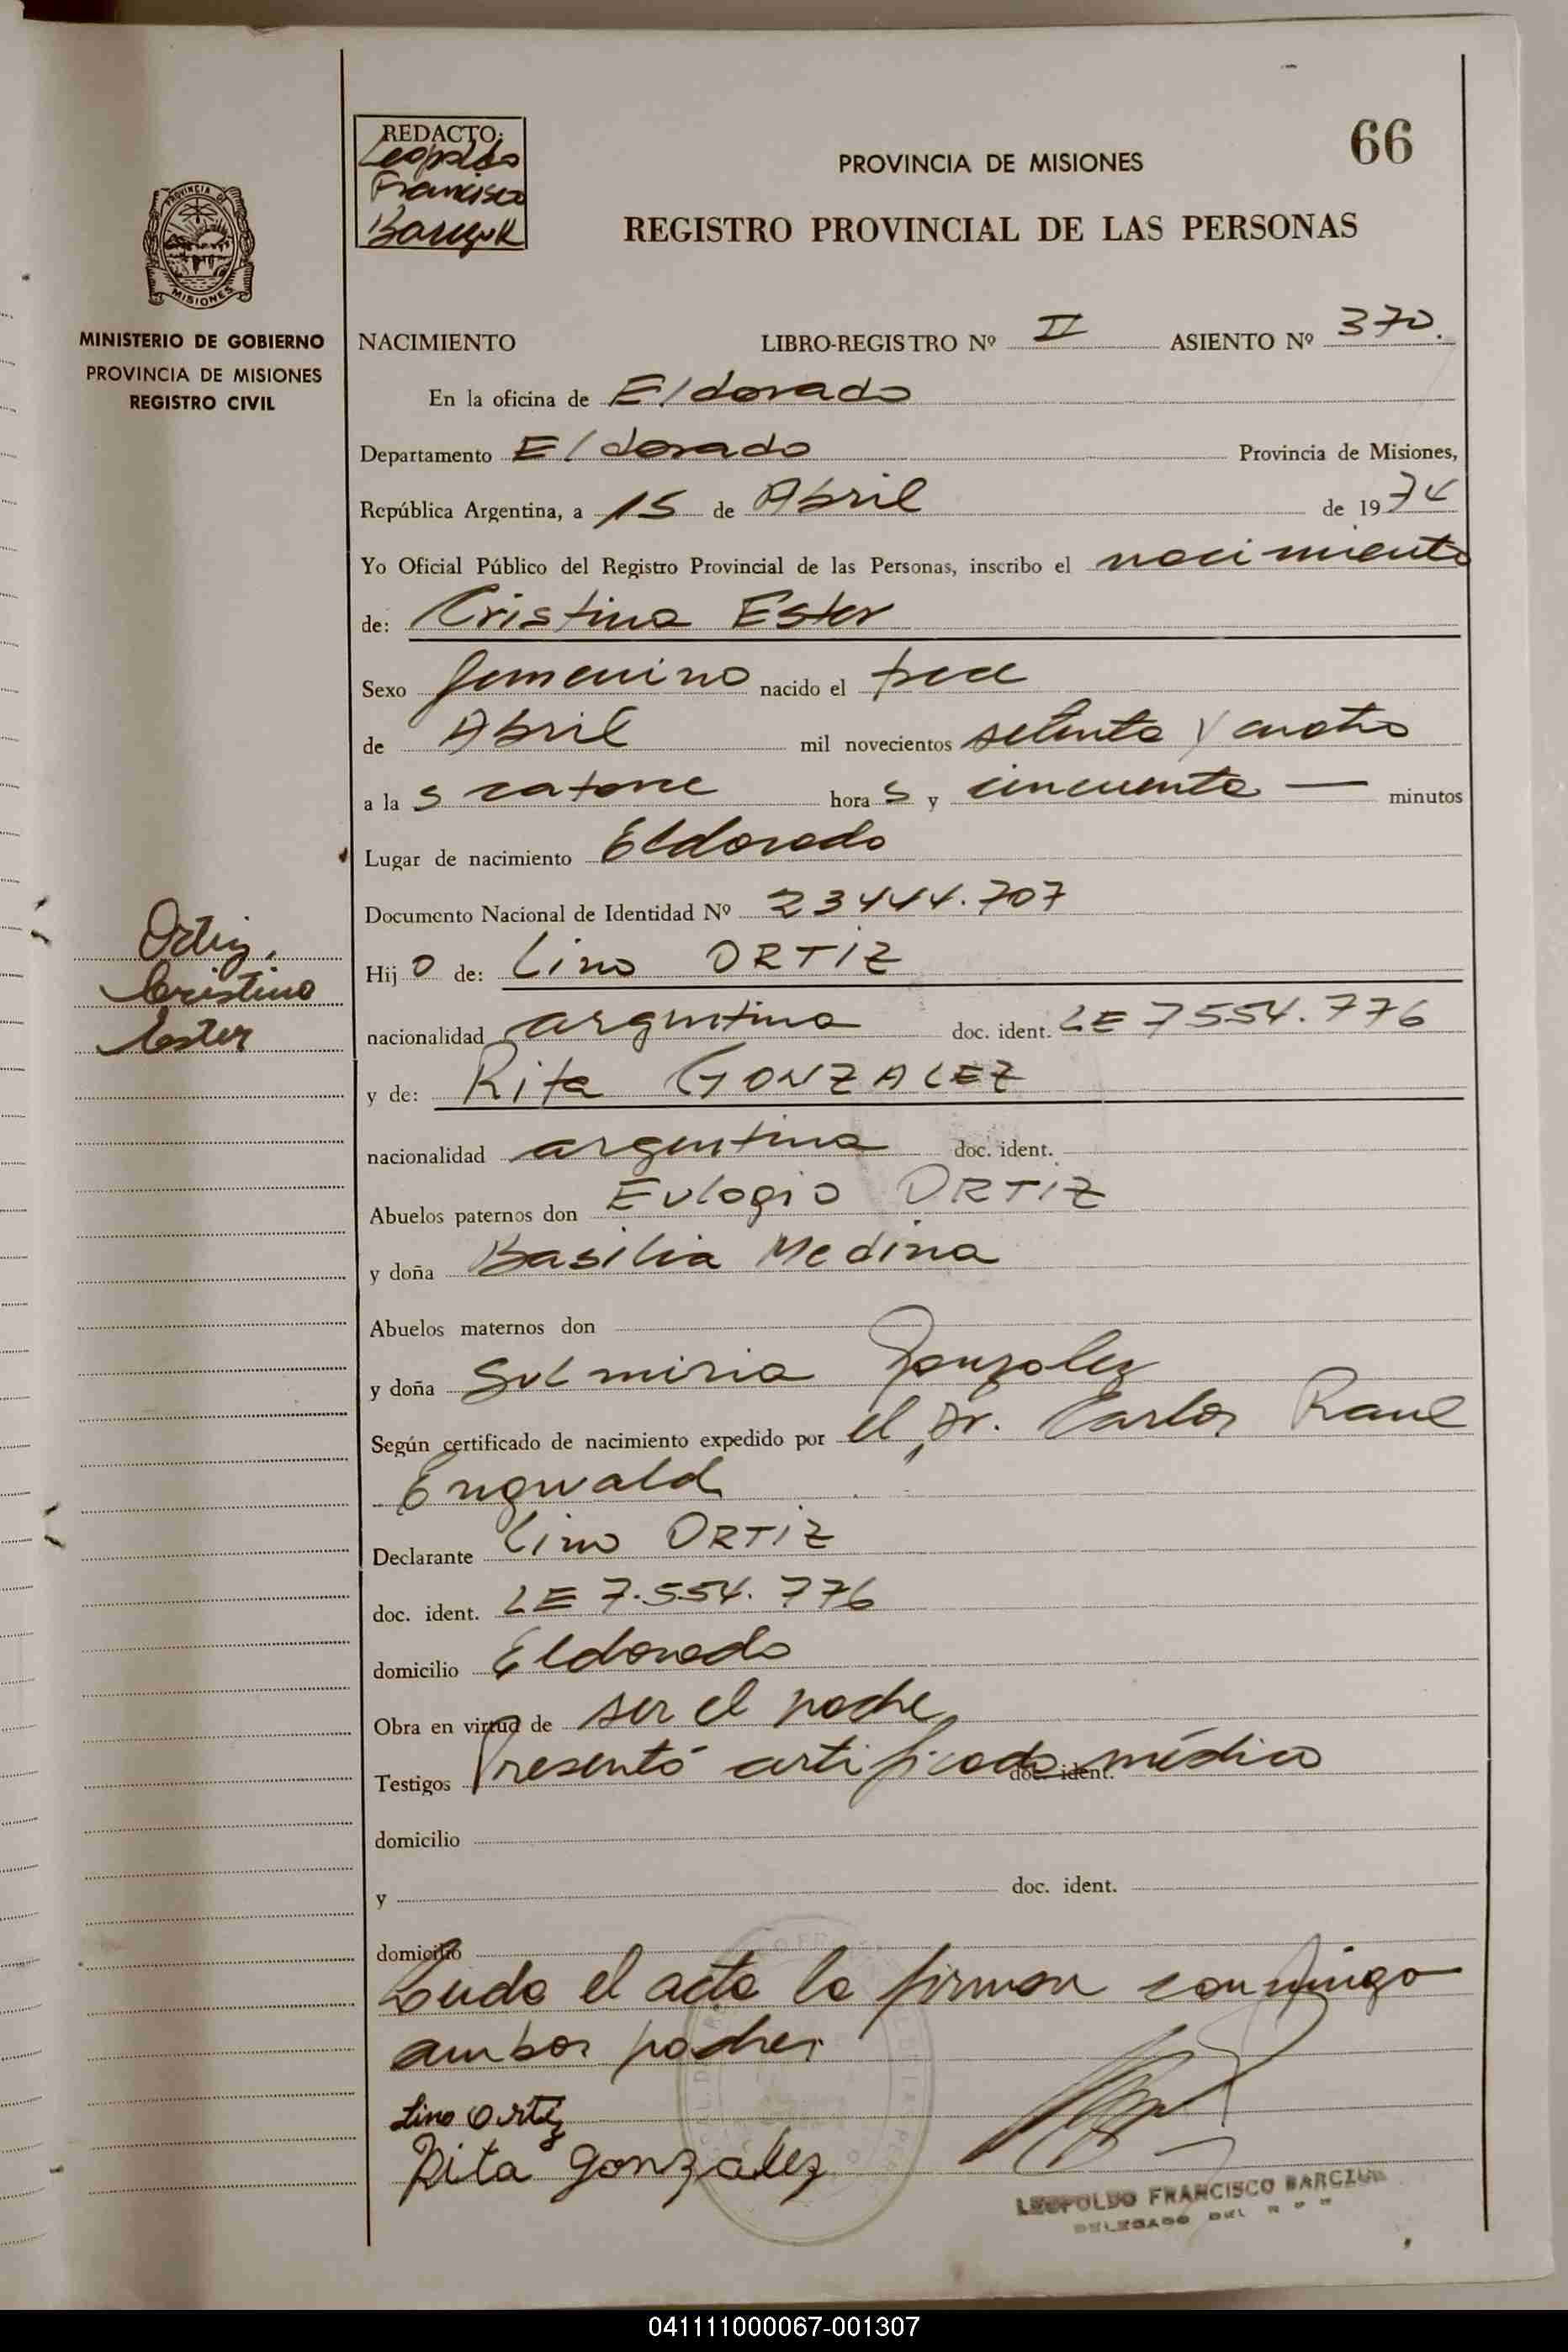 66
REDACTO:
Leopoldo
Francisco
Barczuk
PROVINCIA DE MISIONES
REGISTRO PROVINCIAL DE LAS PERSONAS
PROVINCIA DE
MISIONES
MINISTERIO DE GOBIERNO
PROVINCIA DE MISIONES
REGISTRO CIVIL
NACIMIENTO LIBRO-REGISTRO Nº II ASIENTO Nº 370.
En la oficina de Eldorado
Departamento Eldorado Provincia de Misiones,
República Argentina, a 15 de Abril de 1974
Yo Oficial Público del Registro Provincial de las Personas, inscribo el nacimiento
de: Cristina Ester
Sexo femenino nacido el
de Abril mil novecientos setenta y cuatro
a la s catorce hora s y cincuenta — minutos
Lugar de nacimiento Eldorado
Documento Nacional de Identidad Nº 23444.707
Ortiz,
Cristina
Ester
Hij o de: Lino ORTIZ
nacionalidad argentina doc. ident. LE 7554.776
y de: Rita GONZALEZ
nacionalidad argentina doc. ident.
Abuelos paternos don Eulogio ORTIZ
y doña Basilia Medina
Abuelos maternos don
y doña Gonzalez
Según certificado de nacimiento expedido por el Dr. Carlos Raul
Engwald
Declarante Lino ORTIZ
doc. ident. LE 7.554.776
domicilio Eldorado
Obra en virtud de ser el padre
Testigos Presentó certificado doc. ident. médico
domicilio
y doc. ident.
domicilio
Leida el acta la firman conmigo
ambos padres
Lino Ortiz
Rita González
LEOPOLDO FRANCISCO BARCZUK
DELEGADO DEL R P P
041111000067-001307